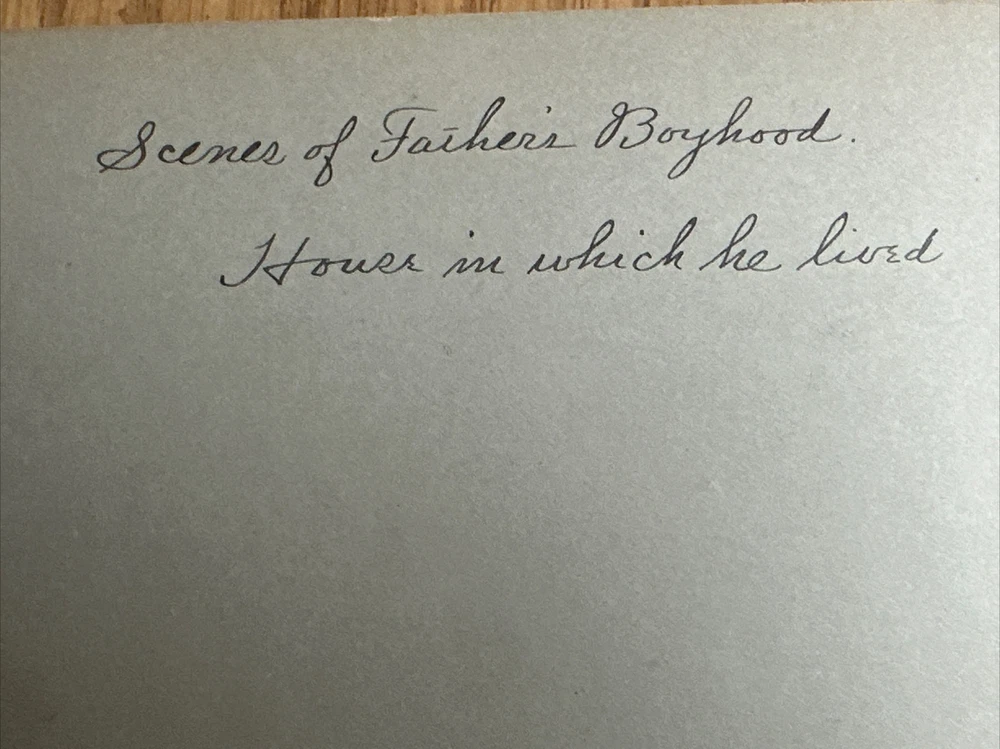 Scenes of Father's Boyhood.
House in which he lived